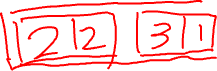 22 31